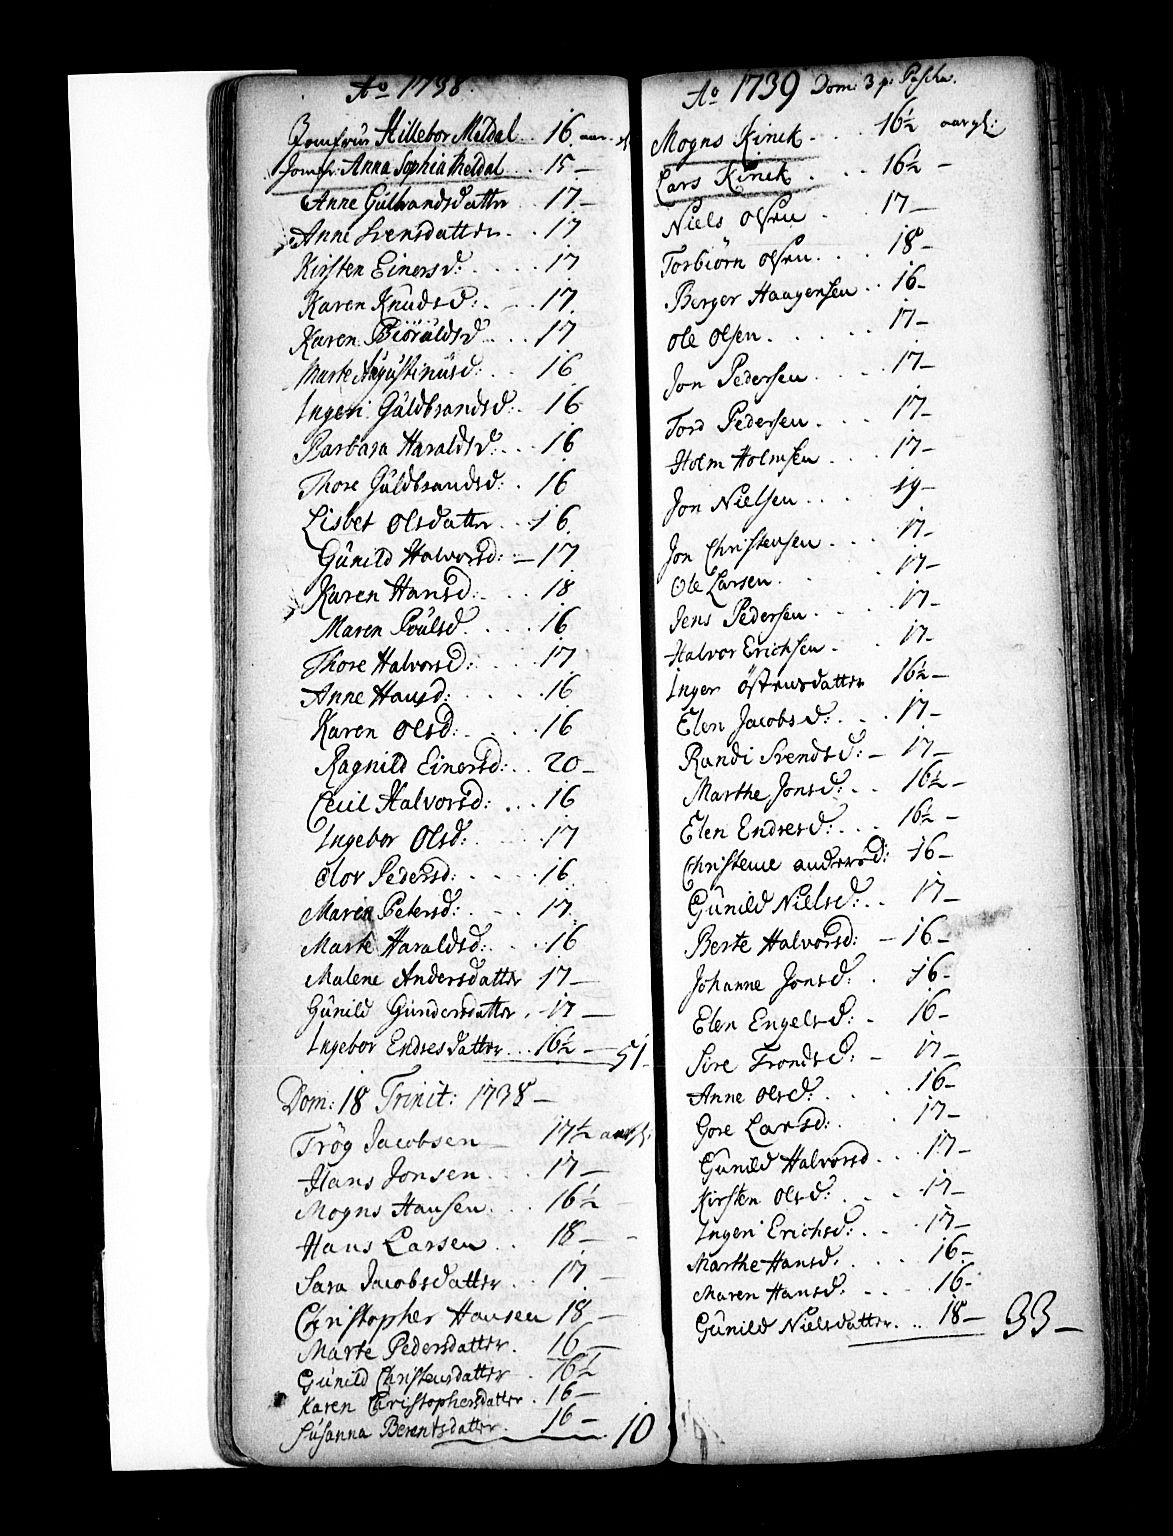 Ao 1738.
Jomfrue Hillebor Meldal .. 16 aar. gl
Jomfr: Anna Sophia Meldal .. 15 —
Anne Gulbrandsdatter .. 17 —
Anne Svensdatter. .. 17
Kirsten Einersd: .... 17
Karen Knudsd: .. 17.
Karen Biöruldsd .... 17
Marte Augustinusd: .. 16
Ingeri Guldbrandsd: . 16
Barbara Haraldsd: .. 16
Thore Guldbrandsd: . 16
Lisbet Olsdatter ... 16.
Gunild Halvorsd: — 17
Karen Hansd: ... 18
Maren Poulsd .... 16
Thore Halvorsd: ... 17
Anne Hansd: .... 16
Karen Olsd: .... 16
Ragnild Einersd: .. 20 —
Cecil Halvorsd: ... 16
Ingebor Olsd: ... 17
Olov Pedersd: .... 16
Maren Petersd: ... 17.
Marte Haraldsd: ... 16
Malene Andersdatter 17 —
Gunild Gundersdatter . 17 —
Ingebor Endresdatter ... 16½ — 51
Dom: 18 Trinit: 1738 —
Trög Jacobsen — 17½ aargl:
Hans Jonsen ... 17 —
Mogns Hansen ... 16½ —
Hans Larsen .. 18 —
Sara Jacobsdatter .. 17 —
Christopher Hansen 18 —
Marte Pedersdatter. 16 —
Gunild Christensdatter . 16½
Karen Christophersdatter . 16 —
Susanna Berentsdatter. 16 — 10
Ao 1739 Dom: 3 p: Pascha.
Mogns Kinck .... 16½ aargl:
Lars Kinck .... 16½ —
Niels Olsen ... 17 —
Torbiörn Olsen .... 18 —
Berger Haagensen .. 16 —
Ole Olsen ..... 17 —
Jon Pedersen .... 17 —
Tord Pedersen .... 17 —
Holm Holmsen ... 17 —
Jon Nielsen .... 19 —
Jon Christensen ... 17 —
Ole Larsen .... 17 —
Jens Pedersen .... 17 —
Halvor Erichsen .. 17 —
Inger Östensdatter 16½ —
Elen Jacobsd: ... 17 —
Randi Svendsd: — 17 —
Marthe Jonsd: .. 16½ —
Elen Endresd: ... 16½ —
Christence andersd: 16 —
Gunild Nielsd: .. 17 —
Berte Halvorsd: — 16 —
Johanne Jonsd . 16 —
Elen Engelsd: . 16 —
Sire Trondsd: — 17 —
Anne Olsd: ... 16 —
Gore Larsd: ... 17 —
Gunild Halvorsd ... 17 —
Kirsten Olsd: ... 17 —
Ingeri Erichsd: .. 17 —
Marthe Hansd: ... 16 —
Maren Hansd: ... 16 —
Gunild Nielsdatter. .. 18 — 33 —